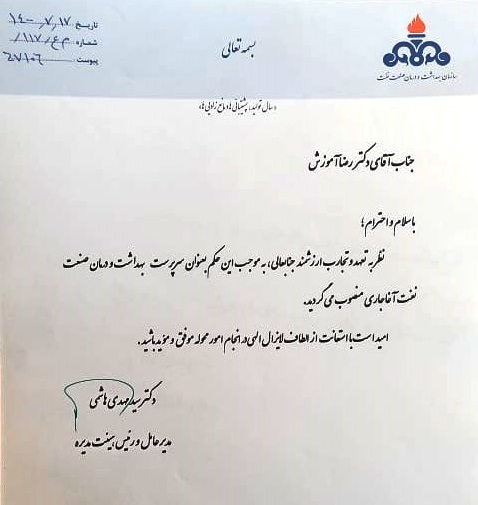 تاریخ: ۱۴۰۰/۷/۱۷
شماره: م ع/۱۱۷/
پیوست: ۲۷۱۰۶
بسمه تعالی
سازمان بهداشت و درمان صنعت نفت
«سال تولید، پشتیبانی ها، مانع زدایی ها»
جناب آقای دکتر رضا آموزش
با سلام و احترام؛
نظر به تعهد و تجارب ارزشمند جنابعالی، به موجب این حکم بعنوان سرپرست بهداشت و درمان صنعت
نفت آغاجاری منصوب می گردید.
امید است با استعانت از الطاف لایزال الهی در انجام امور محوله موفق و مؤید باشید.
دکتر سید مهدی هاشمی
مدیر عامل و رئیس هیئت مدیره